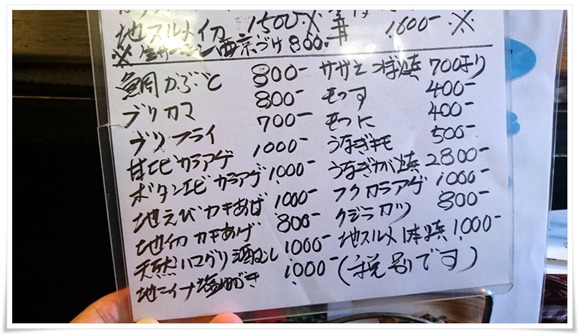 地スルメイカ 1500 ※
1600- ※
※ 生サーモン西京づけ 800.
鯛かぶと 800-
ブリカマ 800-
ブリフライ 700-
甘エビカラアゲ 1000-
ボタンエビカラアゲ 1000-
地えびカキあげ 1000-
地イカカキあげ 800-
天然ハマグリ酒むし 1000-
地ニイナ 1000-
サザエつぼ焼 700より
もつす 400-
もつに 400-
うなぎキモ 500-
うなぎカバ焼 2800-
フグカラアゲ 1000-
クジラカツ 800-
地スルメ1本焼 1000-
(税別です)